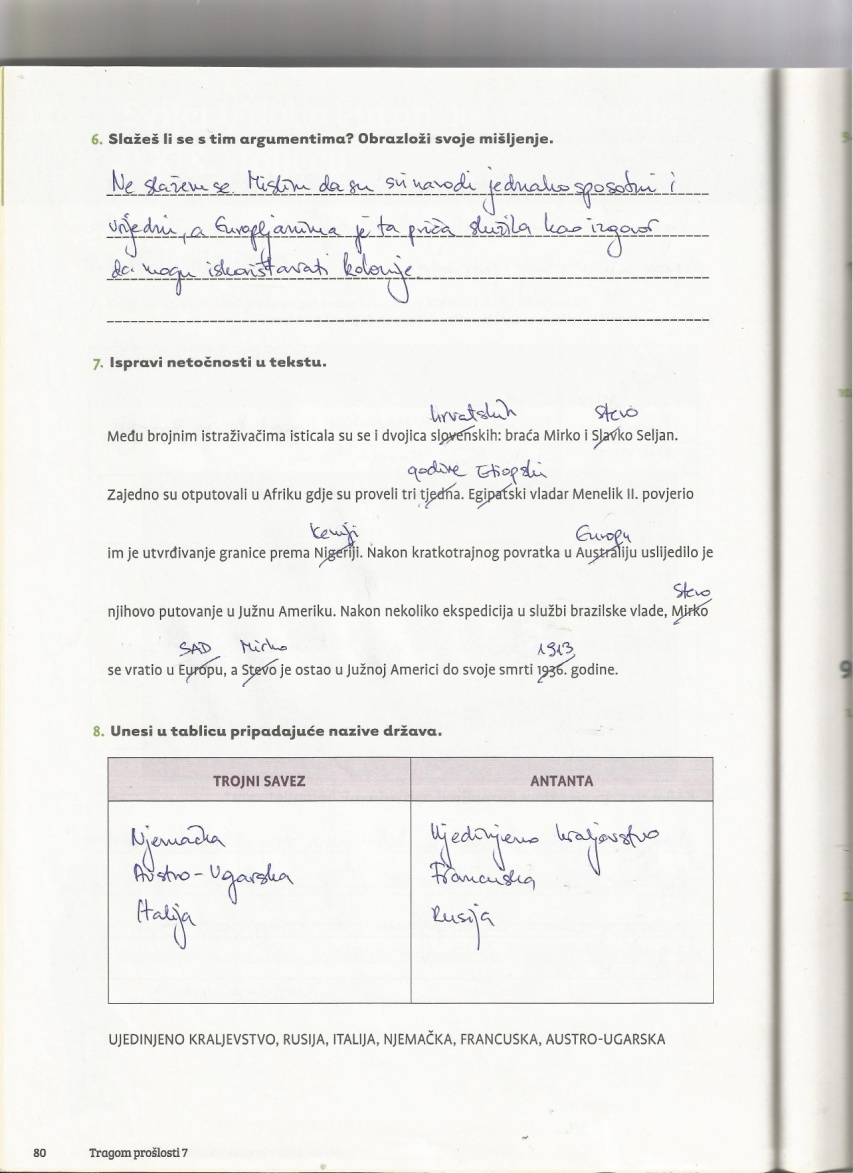 6. Slažeš li se s tim argumentima? Obrazloži svoje mišljenje.
Ne slažem se. Mislim da su svi narodi jednako sposobni i
vrijedni, a Europljanima je ta priča služila kao izgovor
da mogu iskorištavati kolonije.
7. Ispravi netočnosti u tekstu.
hrvatskih Stevo
Među brojnim istraživačima isticala su se i dvojica slovenskih: braća Mirko i Slavko Seljan.
godine Etiopski
Zajedno su otputovali u Afriku gdje su proveli tri tjedna. Egipatski vladar Menelik II. povjerio
Keniji Europu
im je utvrđivanje granice prema Nigeriji. Nakon kratkotrajnog povratka u Australiju uslijedilo je
Stevo
njihovo putovanje u Južnu Ameriku. Nakon nekoliko ekspedicija u službi brazilske vlade, Mirko
SAD Mirko 1913
se vratio u Europu, a Stevo je ostao u Južnoj Americi do svoje smrti 1936. godine.
8. Unesi u tablicu pripadajuće nazive država.
TROJNI SAVEZ ANTANTA
Njemačka Ujedinjeno kraljevstvo
Austro-Ugarska Francuska
Italija Rusija
UJEDINJENO KRALJEVSTVO, RUSIJA, ITALIJA, NJEMAČKA, FRANCUSKA, AUSTRO-UGARSKA
80 Tragom prošlosti 7